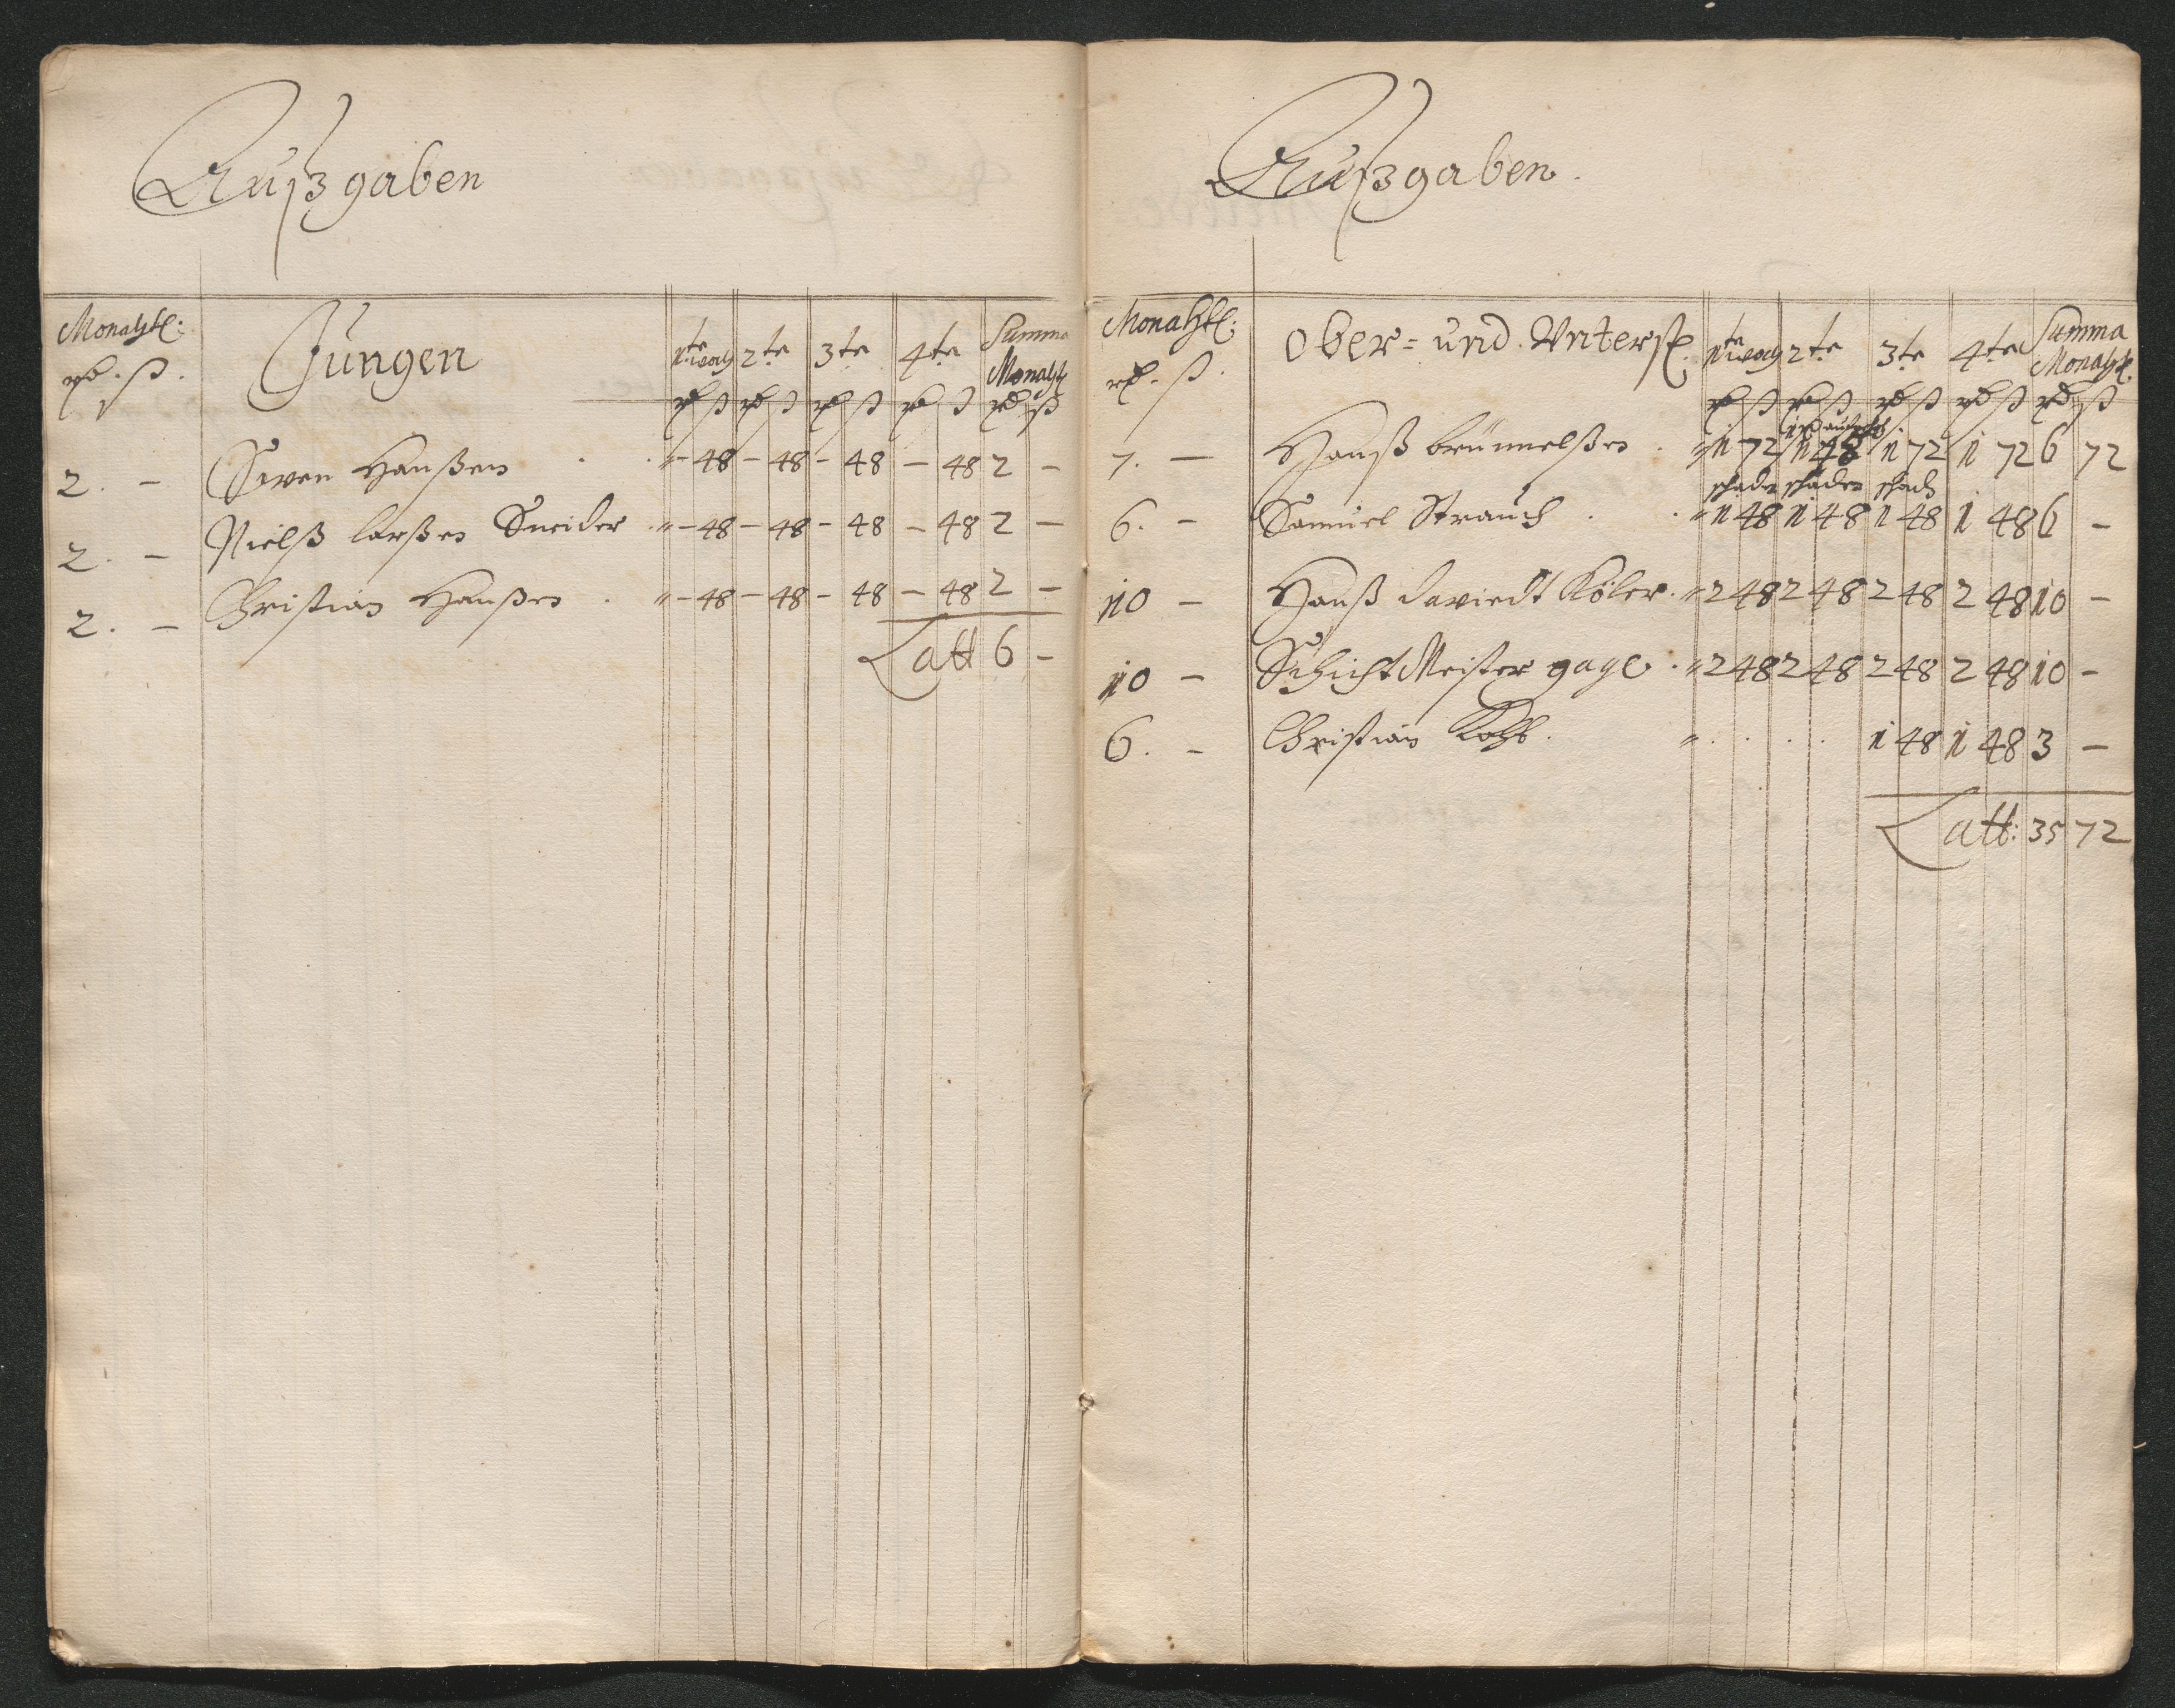 Außgaben
Monahtl: Jungen 1te woch 2te 3te 4te Summa Monahtl
rd. ß. rd ß rd ß rd ß rd ß rd ß
2. - Swen Hanßen . . " - 48 - 48 - 48 - 48 2 -
2. - Nielß larßen Sneider " - 48 - 48 - 48 - 48 2 -
2. - Christian Hanßen . " - 48 - 48 - 48 - 48 2 -
Latt 6 -
Außgaben.
Monahtl: Ober= und Unterst. 1te woch 2te 3te 4te Summa Monahtl.
rd. ß. rd ß rd ß rd ß rd ß rd ß
7. - Hanß brünnelßen . " 1 72 1 48 1 72 1 72 6 72
schaden schaden schad
6. - Samuel Strauch . . " 1 48 1 48 1 48 1 48 6 -
10 - Hanß daviedt Köler. " 2 48 2 48 2 48 2 48 10 -
10 - Schicht Meister gage . " 2 48 2 48 2 48 2 48 10 -
6. - Christian Kohl. " . . . . 1 48 1 48 3 -
Latt: 35 72